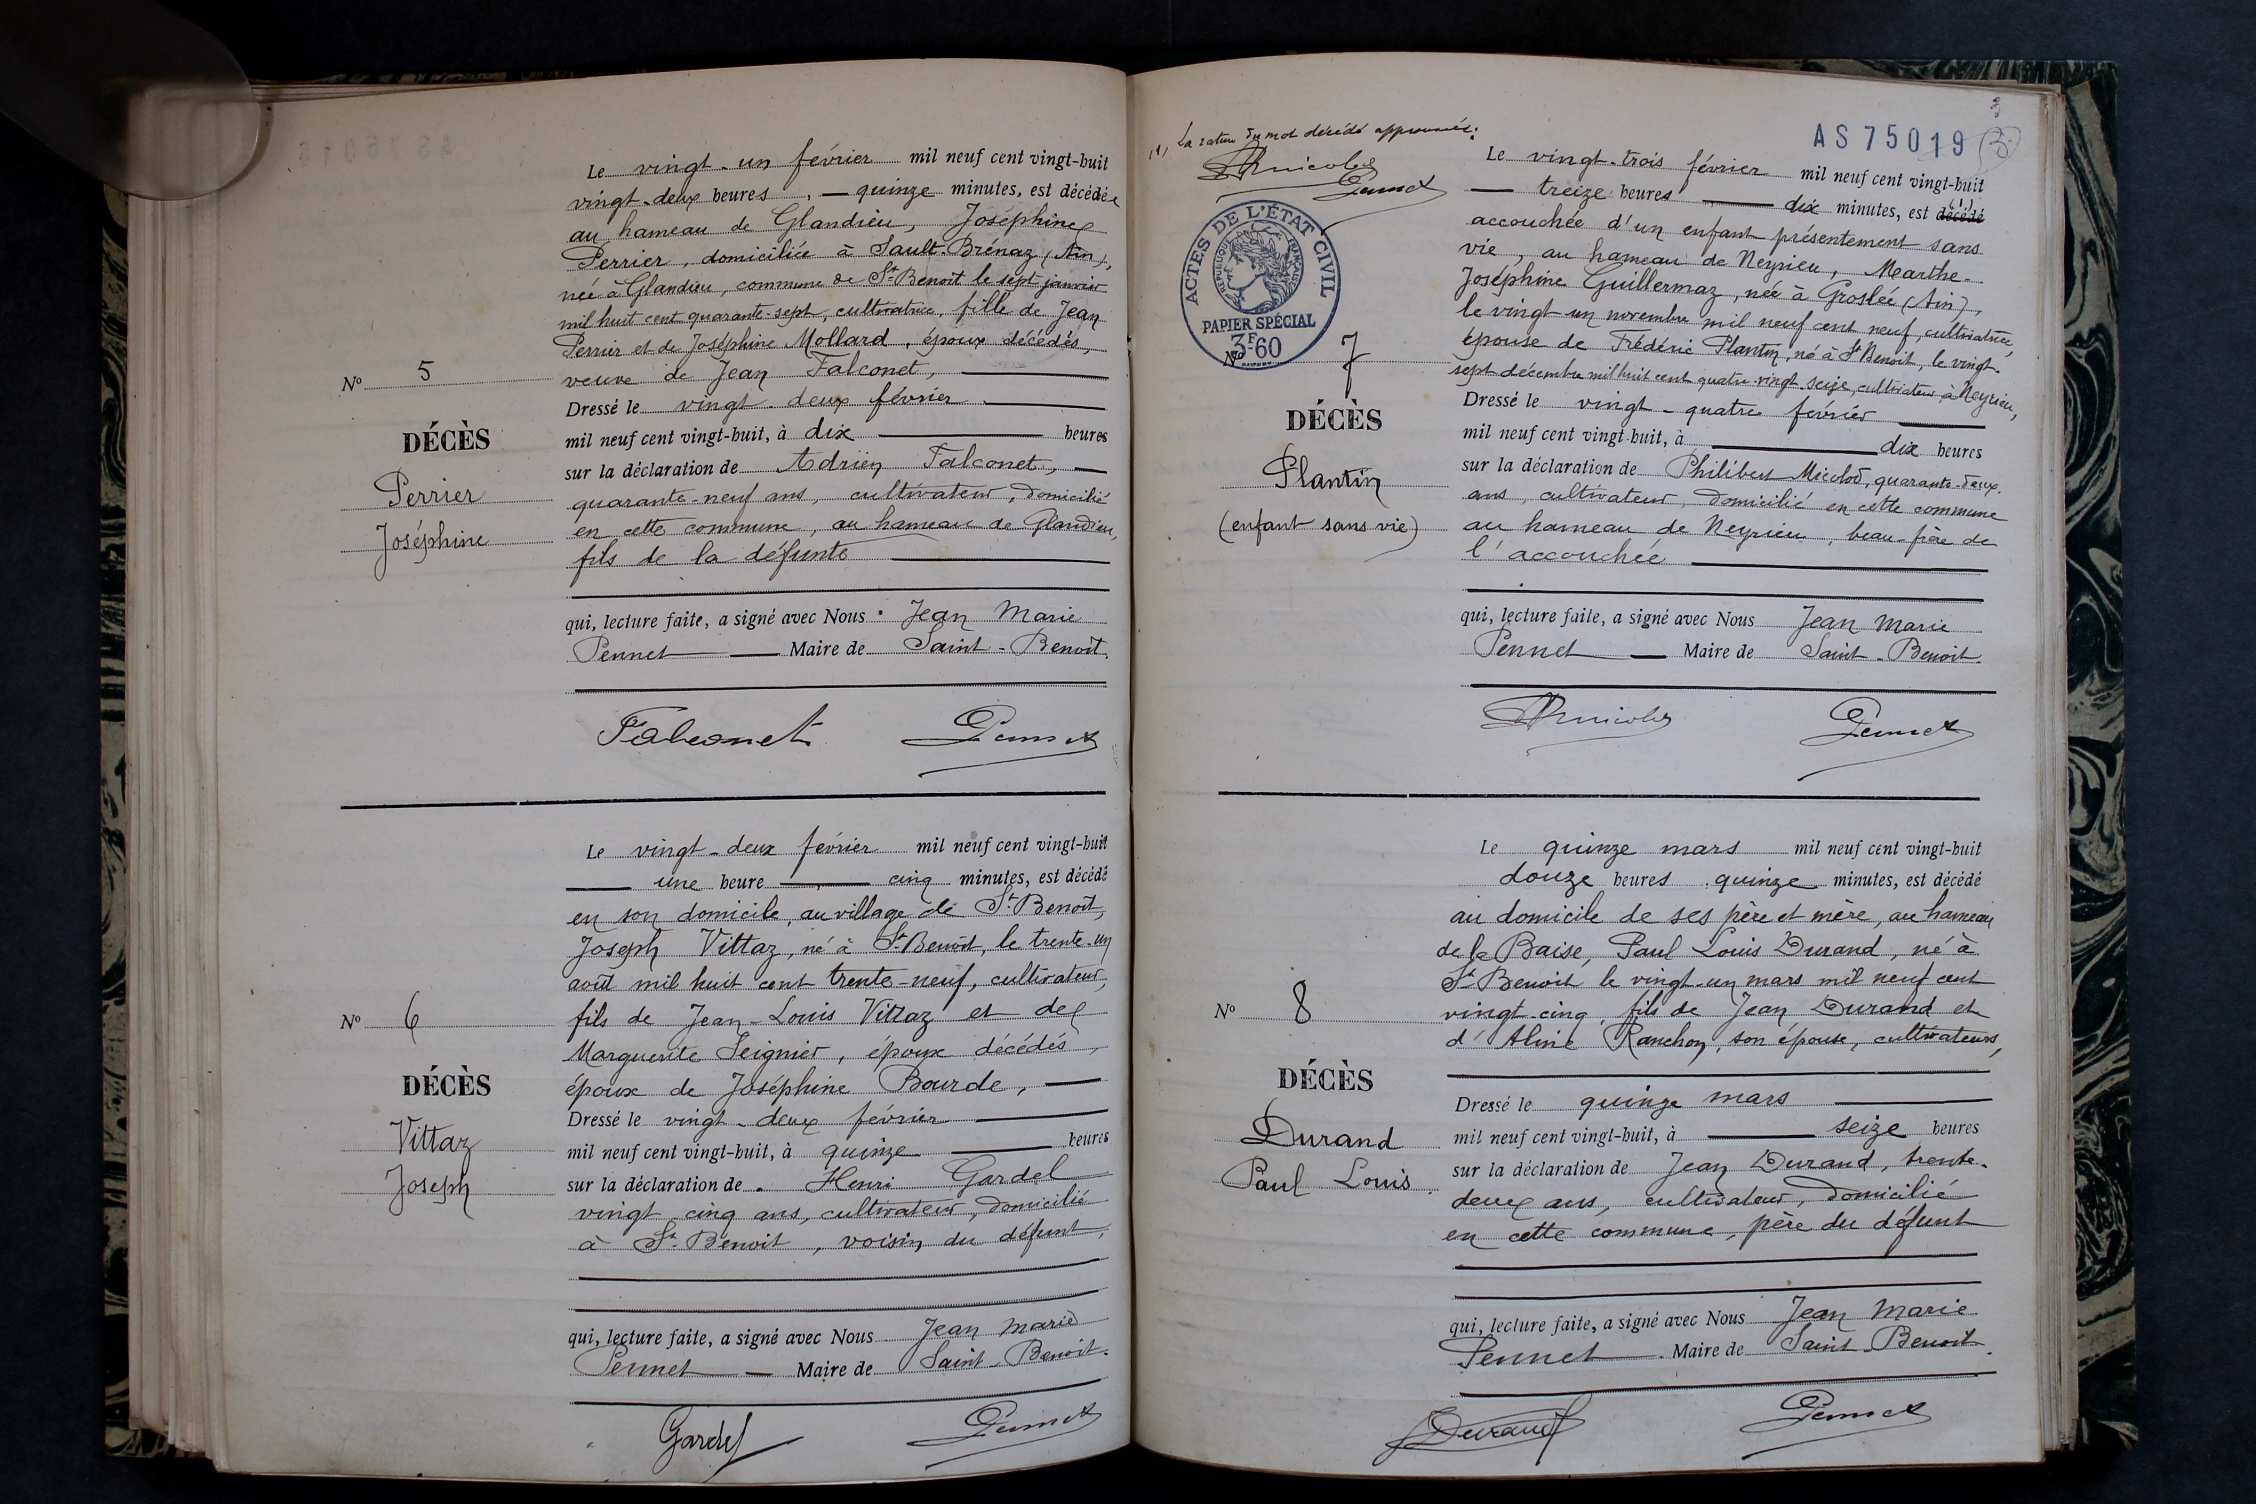 Le vingt-un février mil neuf cent vingt-huit
vingt-deux heures, — quinze minutes, est décédée
au hameau de Glandieu, Joséphine
Perrier, domiciliée à Sault-Brénaz (Ain),
née à Glandieu, commune de St-Benoît le sept janvier
mil huit cent quarante-sept, cultivatrice, fille de Jean
Perrier et de Joséphine Mollard, époux décédés,
No 5
veuve de Jean Falconet,
Dressé le vingt-deux février
DÉCÈS
mil neuf cent vingt-huit, à dix heures
sur la déclaration de Adrien Falconet,
Perrier
quarante-neuf ans, cultivateur, domicilié
en cette commune, au hameau de Glandieu,
Joséphine
fils de la défunte
qui, lecture faite, a signé avec Nous Jean Marie
Pennet — Maire de Saint-Benoît.
Falconet Pennet
Le vingt-deux février mil neuf cent vingt-huit
une heure, cinq minutes, est décédé
en son domicile, au village de St-Benoît,
Joseph Vittaz, né à St-Benoît, le trente-un
août mil huit cent trente-neuf, cultivateur,
No 6
fils de Jean-Louis Vittaz et de
Marguerite Seignier, époux décédés,
DÉCÈS
époux de Joséphine Bourde,
Dressé le vingt-deux février
Vittaz
mil neuf cent vingt-huit, à quinze heures
Joseph
sur la déclaration de Henri Gardel
vingt cinq ans, cultivateur, domicilié
à St-Benoit, voisin du défunt,
qui, lecture faite, a signé avec Nous Jean Marie
Pennet — Maire de Saint-Benoît.
Gardel Pennet
(1) La rature du mot décédé approuvée.
Pennet
AS 75019
3
ACTES DE L'ÉTAT CIVIL
RÉPUBLIQUE FRANÇAISE
PAPIER SPÉCIAL
3F60
Le vingt-trois février mil neuf cent vingt-huit
— treize heures — dix minutes, est décédé (1)
accouchée d'un enfant présentement sans
vie, au hameau de Neyrieu, Marthe-
Joséphine Guillermaz, née à Groslée (Ain),
le vingt-un novembre mil neuf cent neuf, cultivatrice,
No 7
épouse de Frédéric Plantin, né à St Benoit, le vingt-
sept décembre mil huit cent quatre-vingt-seize, cultivateur à Neyrieu,
Dressé le vingt-quatre février
DÉCÈS
mil neuf cent vingt-huit, à dix heures
Plantin
sur la déclaration de Philibert Micolod, quarante-deux
ans, cultivateur, domicilié en cette commune
(enfant sans vie)
au hameau de Neyrieu, beau-frère de
l'accouchée
qui, lecture faite, a signé avec Nous Jean Marie
Pennet — Maire de Saint-Benoit.
Pennet
Le quinze mars mil neuf cent vingt-huit
douze heures quinze minutes, est décédé
au domicile de ses père et mère, au hameau
de la Baise, Paul Louis Durand, né à
St Benoit le vingt-un mars mil neuf cent
No 8
vingt-cinq, fils de Jean Durand et
d'Aline Ranchon, son épouse, cultivateurs,
DÉCÈS
Dressé le quinze mars
Durand
mil neuf cent vingt-huit, à seize heures
Paul Louis
sur la déclaration de Jean Durand, trente-
deux ans, cultivateur, domicilié
en cette commune, père du défunt
qui, lecture faite, a signé avec Nous Jean Marie
Pennet Maire de Saint-Benoit.
Durand Pennet